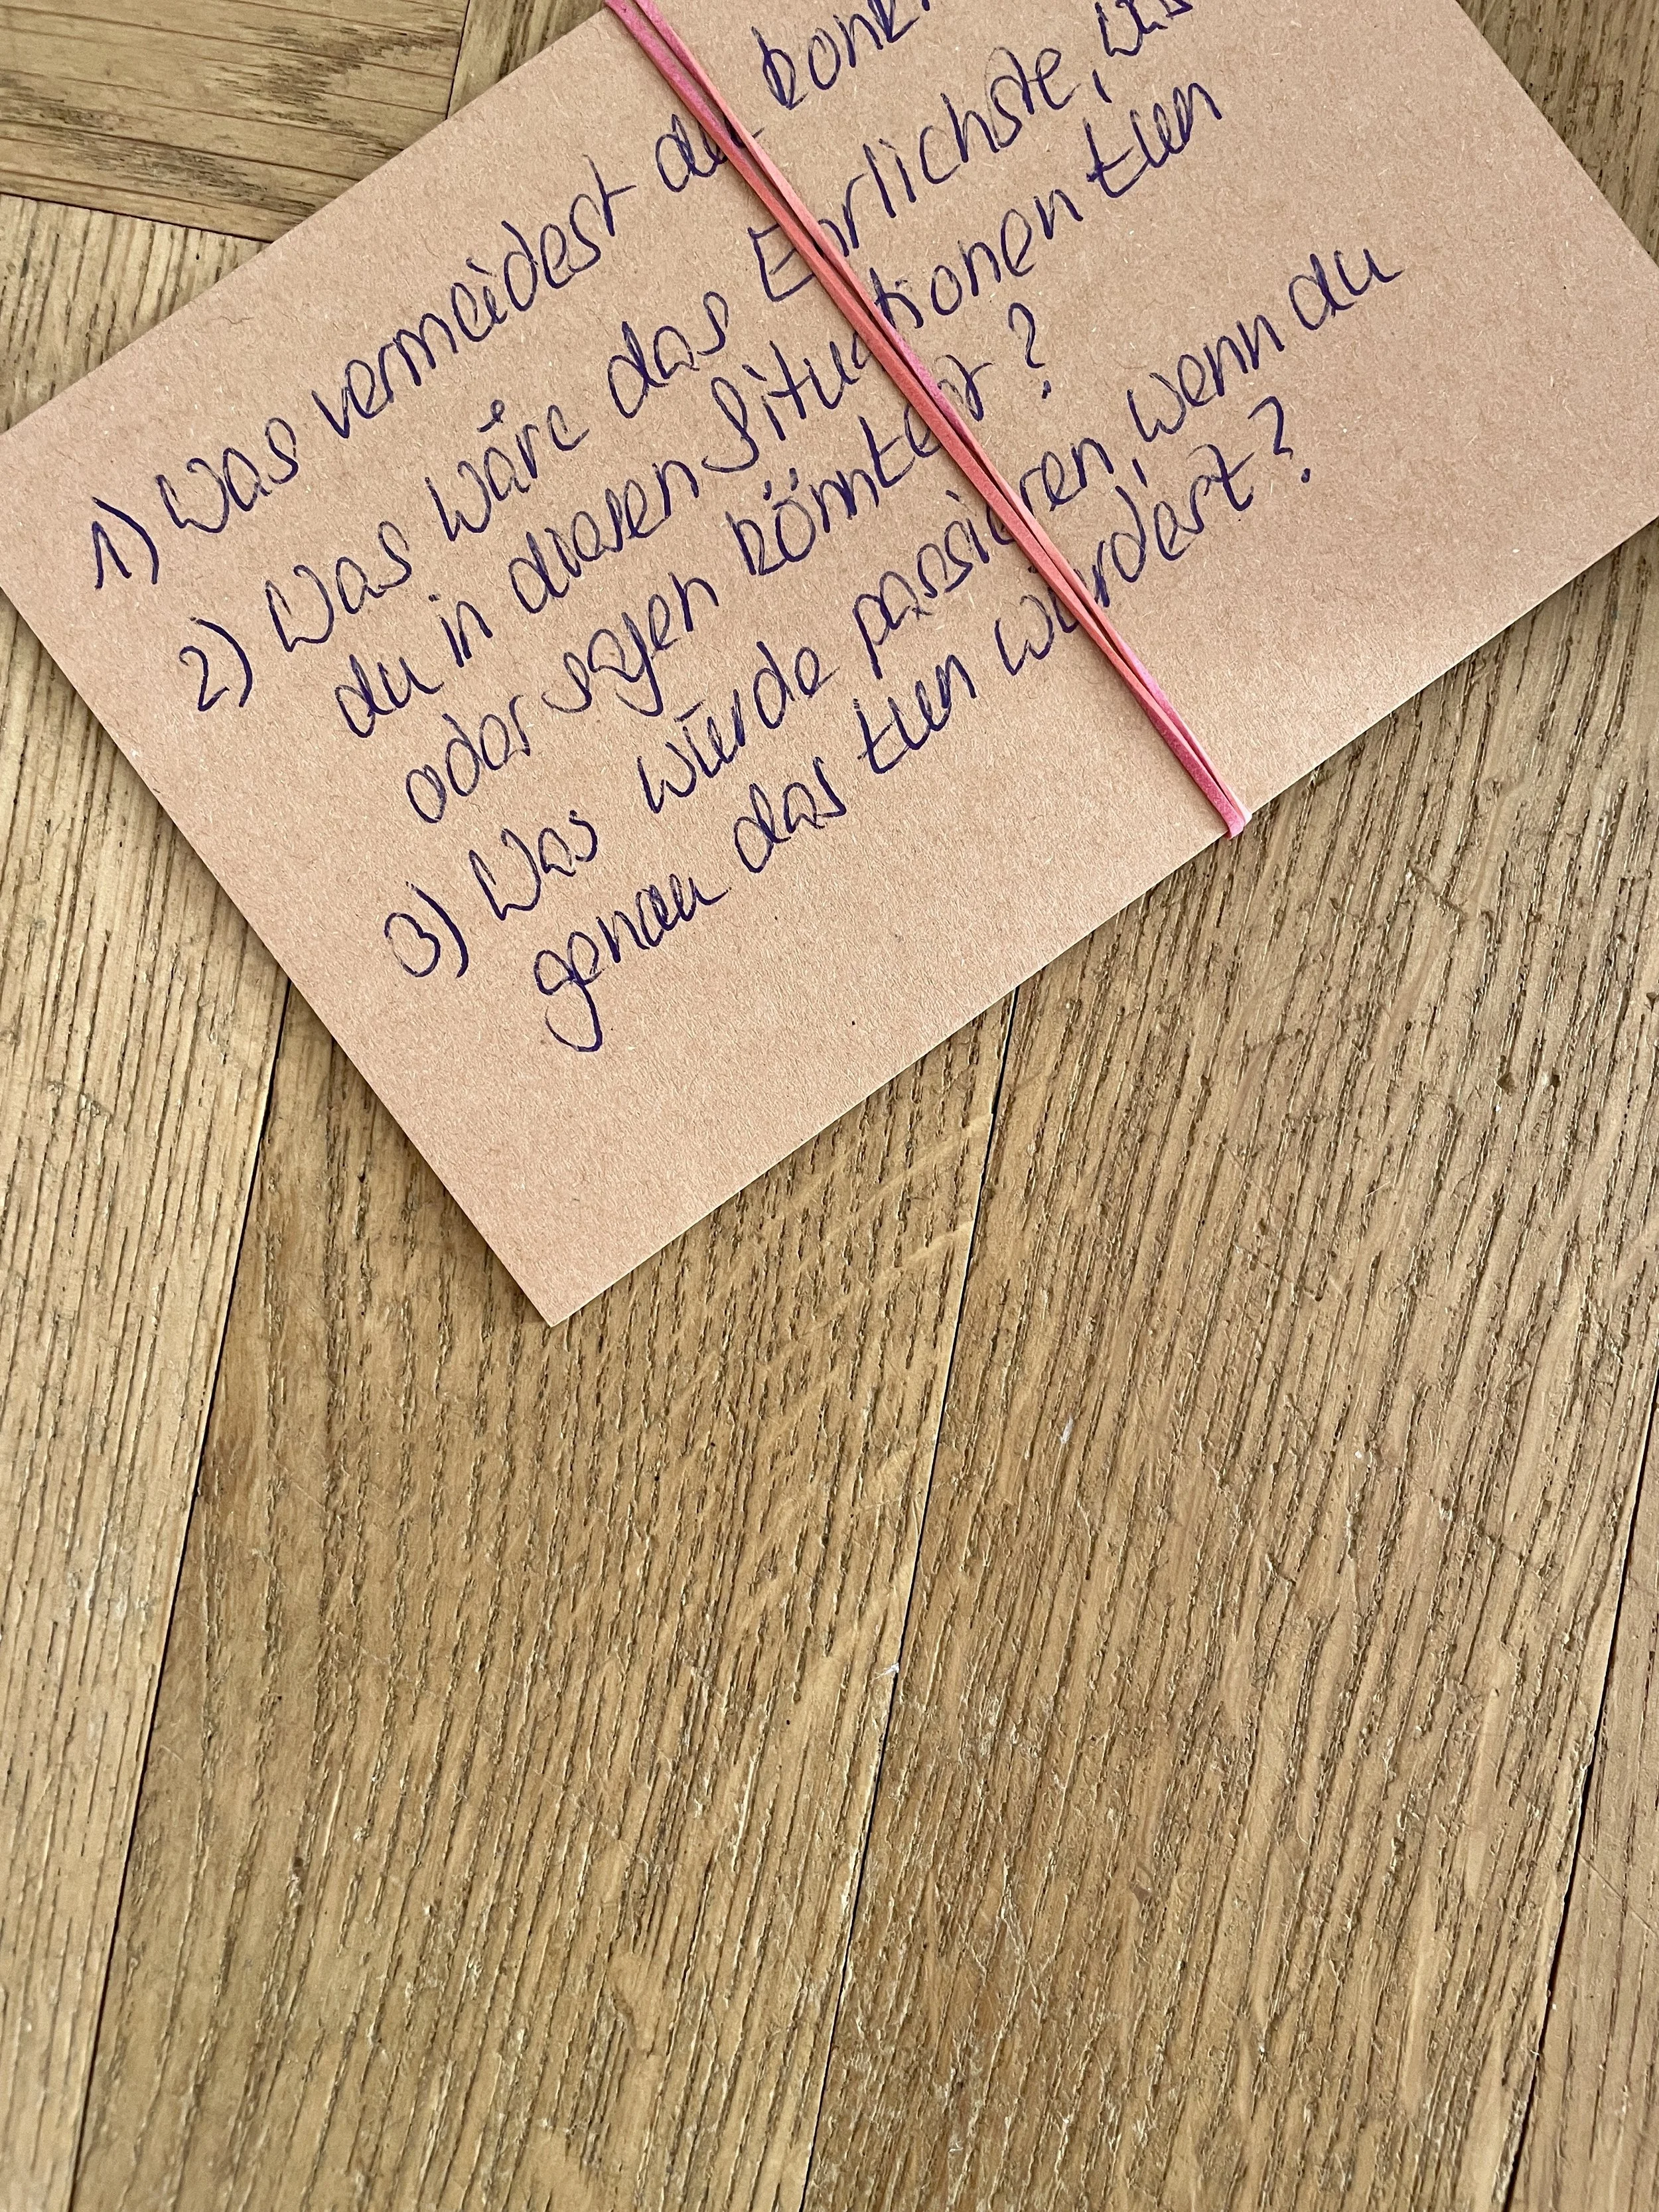 1) Was vermeidest du konk
2) Was wäre das Ehrlichste, was
du in diesen Situationen tun
oder sagen könntest?
3) Was würde passieren, wenn du
genau das tun würdest?